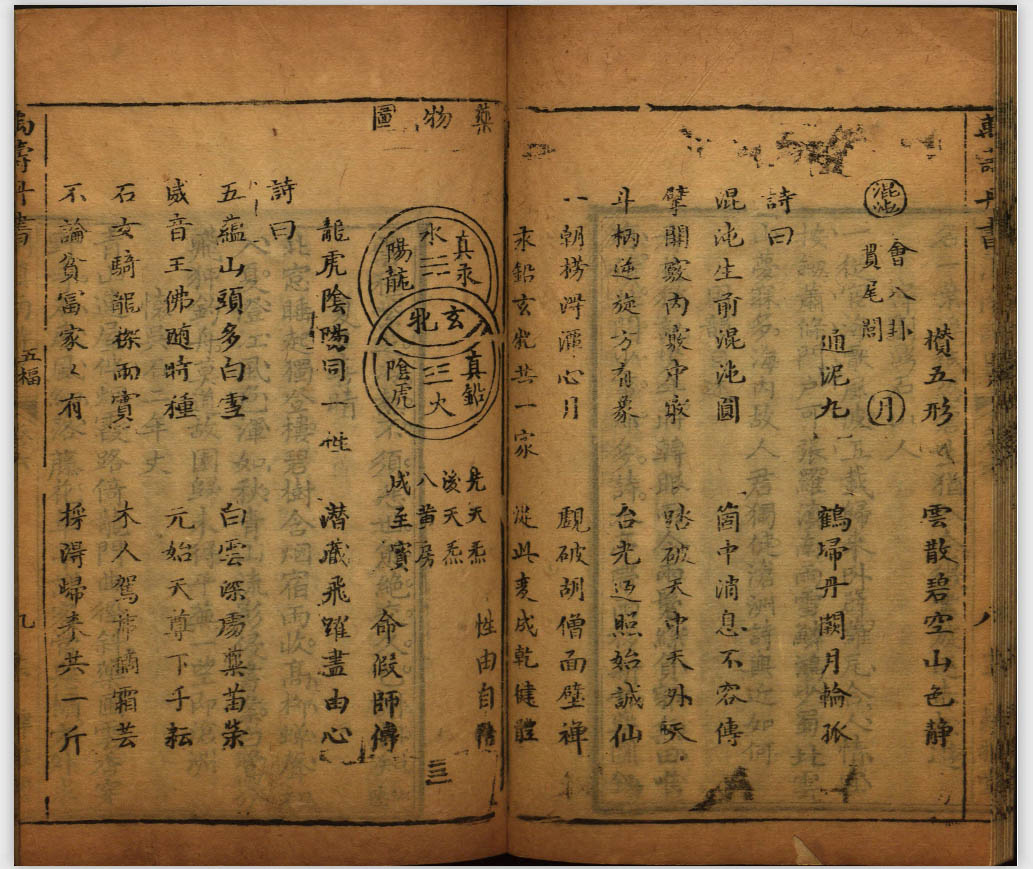 萬壽丹書
攅五形
雲散碧空山色静
混沌
會八卦
貫尾閭
月
通泥丸
鶴㱕丹闕月輪孤
詩曰
混沌生前混沌圓
箇中消息不容傳
擘開竅內竅中竅
踏破天中天外天
斗柄逆旋方有象
台光返照始誠仙
一朝撈得潭心月
覷破胡僧面壁禅
八
汞鉛玄牝共一家
從此変成乾健體
藥物圖
真汞
水
陽龍
玄牝
真鉛
火
陰虎
先天炁
後天炁
八黄房
成至寳
性由自悟
命假師傳
三
龍虎陰陽同一性
潜藏飛躍盡由心
詩曰
五蘊山頭多白雪
白雲深䖏藥苗榮
威音王佛随時種
元始天尊下手耘
石女騎龍探雨實
木人駕虎摘霜芸
不論貧富家〻有
採淂歸來共一斤
萬壽丹書
五福
九